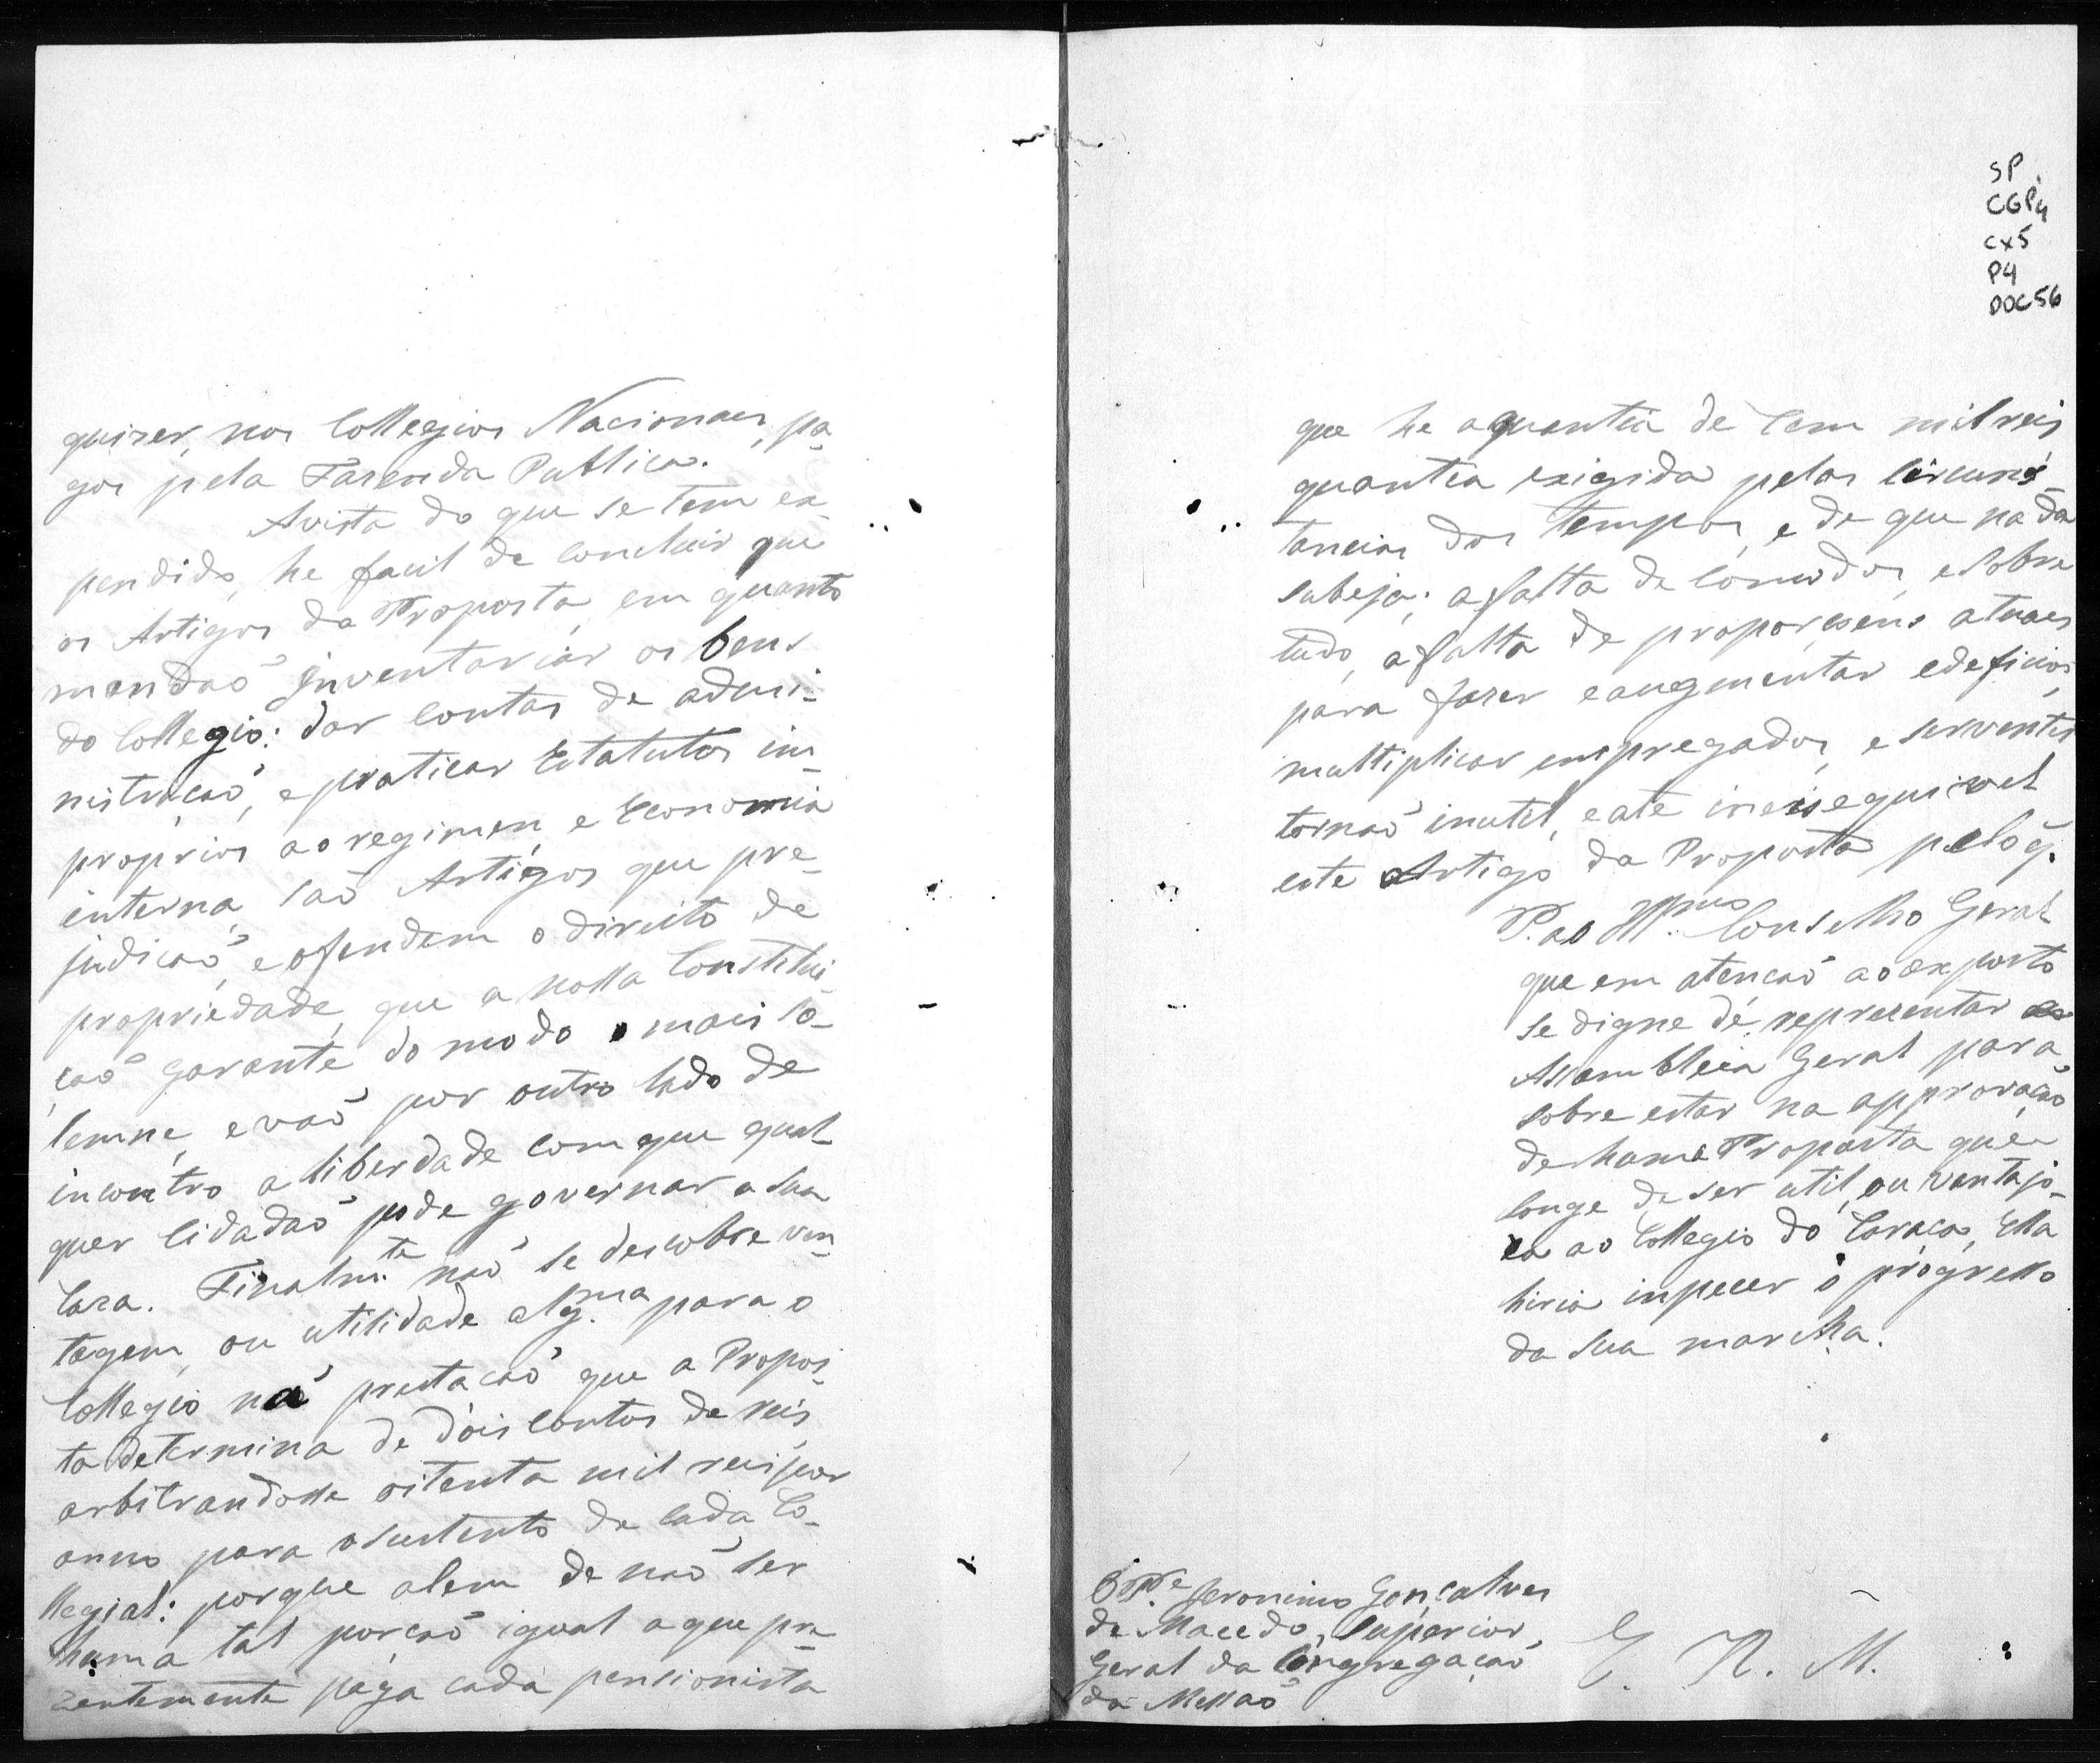 quizer, nos Collegios Nacionaes, pa_
gos pela Fazenda Publica.
Avista do que se tem ex_
pendido, he facil de concluir que
os Artigos da Proposta, em quanto
mandaõ inventariar os bens
do Collegio: dar contas de admi_
nistraçaõ, e praticar Estatutos im_
proprios ao regimen, e Economia
interna, saõ Artigos que pre_
judicaõ, e ofendem o direito de
propriedade, que a nossa Constitui_
çaõ garante do modo o mais so_
lemne, e vaõ por outro lado de
incontro a liberdade com que qual
quer Cidadaõ pode governar a sua
Caza. Finalm.te naõ se descobre van_
tagem, ou utilidade alg.ma para o
Collegio na prestacaõ que a Propos_
ta determina de dois contos de reis,
arbitrandosse oitenta mil reis por
anno para o sustento de cada Co_
llegial: porque alem de naõ ser
huma tal porcaõ igual a que pre_
zentemente paga cada pensionista
SP
CGP4
CX5
P4
DOC56
que he a quantia de Cem mil reis,
quantia exigida pelas Circuns_
tancias dos tempos, e de que nada
sobeja; a falta de Comodos, e sobre
tudo, a falta de proporçoens atuaes
para fazer e augmentar edeficios,
multiplicar empregados, e serventes
tornaõ inutil, e ate inexsequivel
este Artigo da Proposta pelo q.
P. ao Ill.mo Conselho Geral
que em atencaõ ao exposto
se digne de representar a
Assembleia Geral para
sobre estar na approvaçaõ
de huma Proposta que
longe de ser util, ou vantajo_
za ao Collegio do Caraça, Ella
hiria inpecer o progresso
da sua marcha.
O P.e Jeronimo Gonçalves
de Macedo, Superior
Geral da Congregaçaõ
da Missaõ
E. R. M.